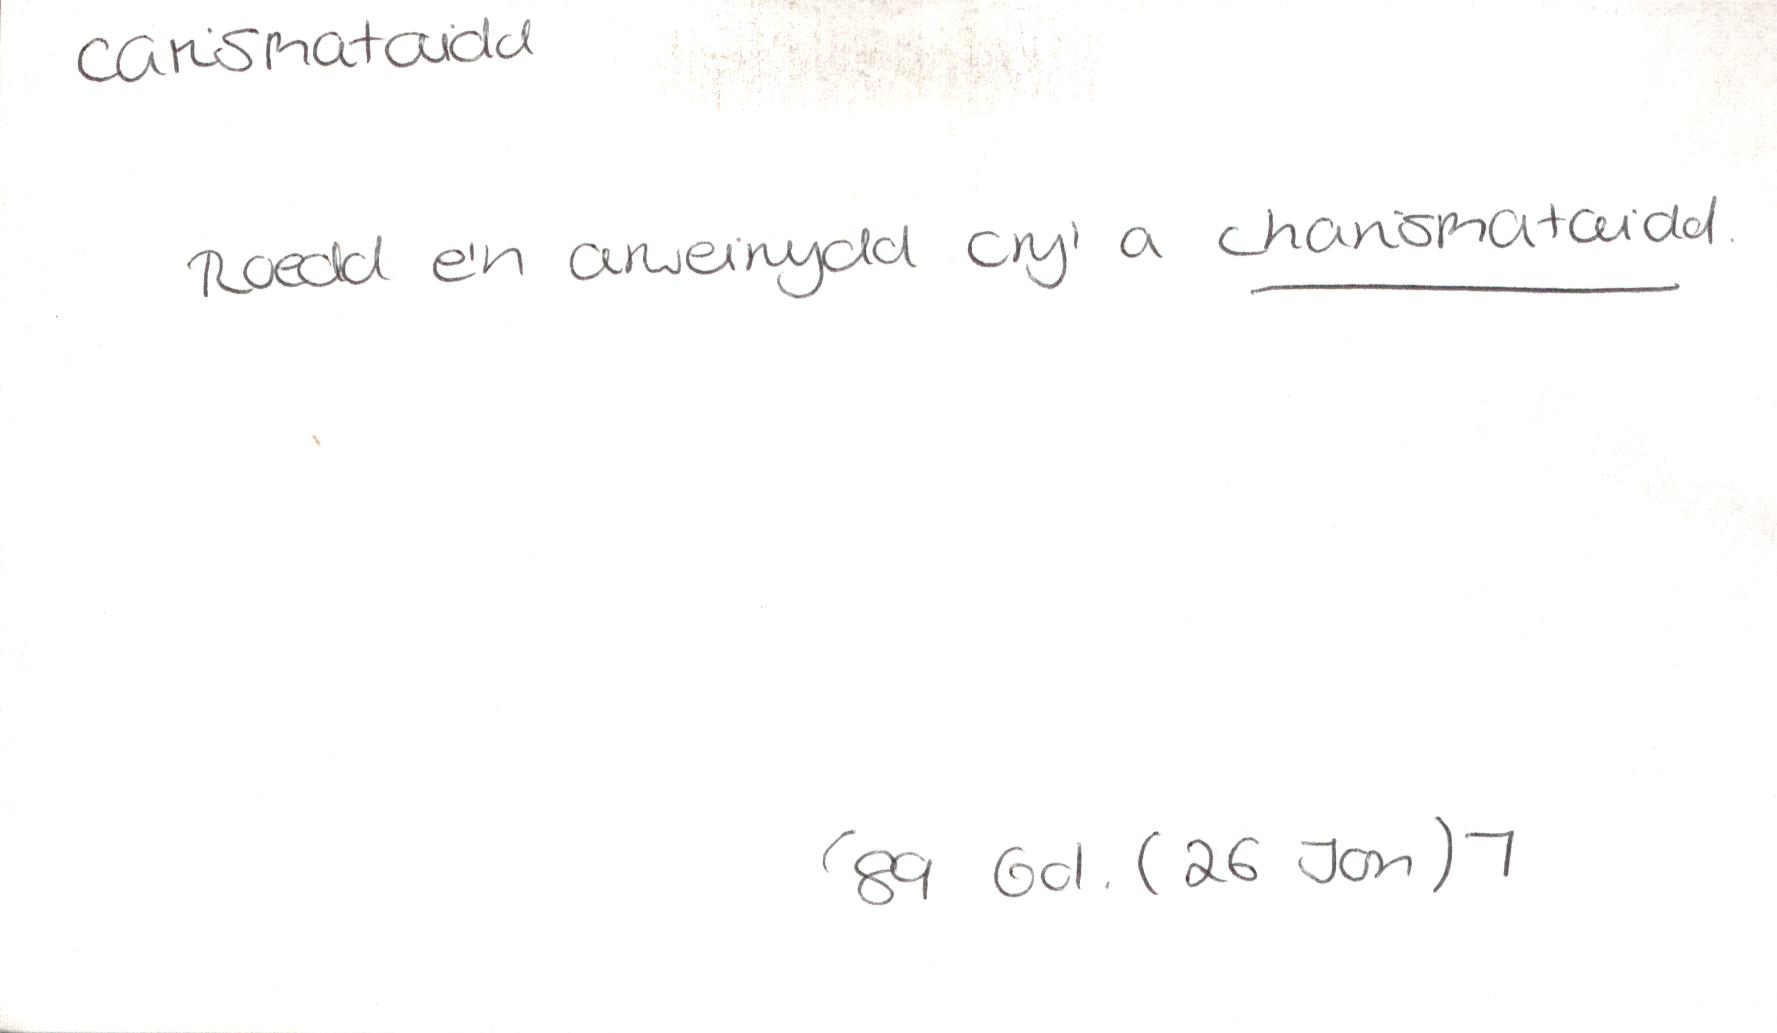 carismataidd
Roedd e'n arweinydd cry' a charismataidd.
'89 Gol. (26 Ion) 7